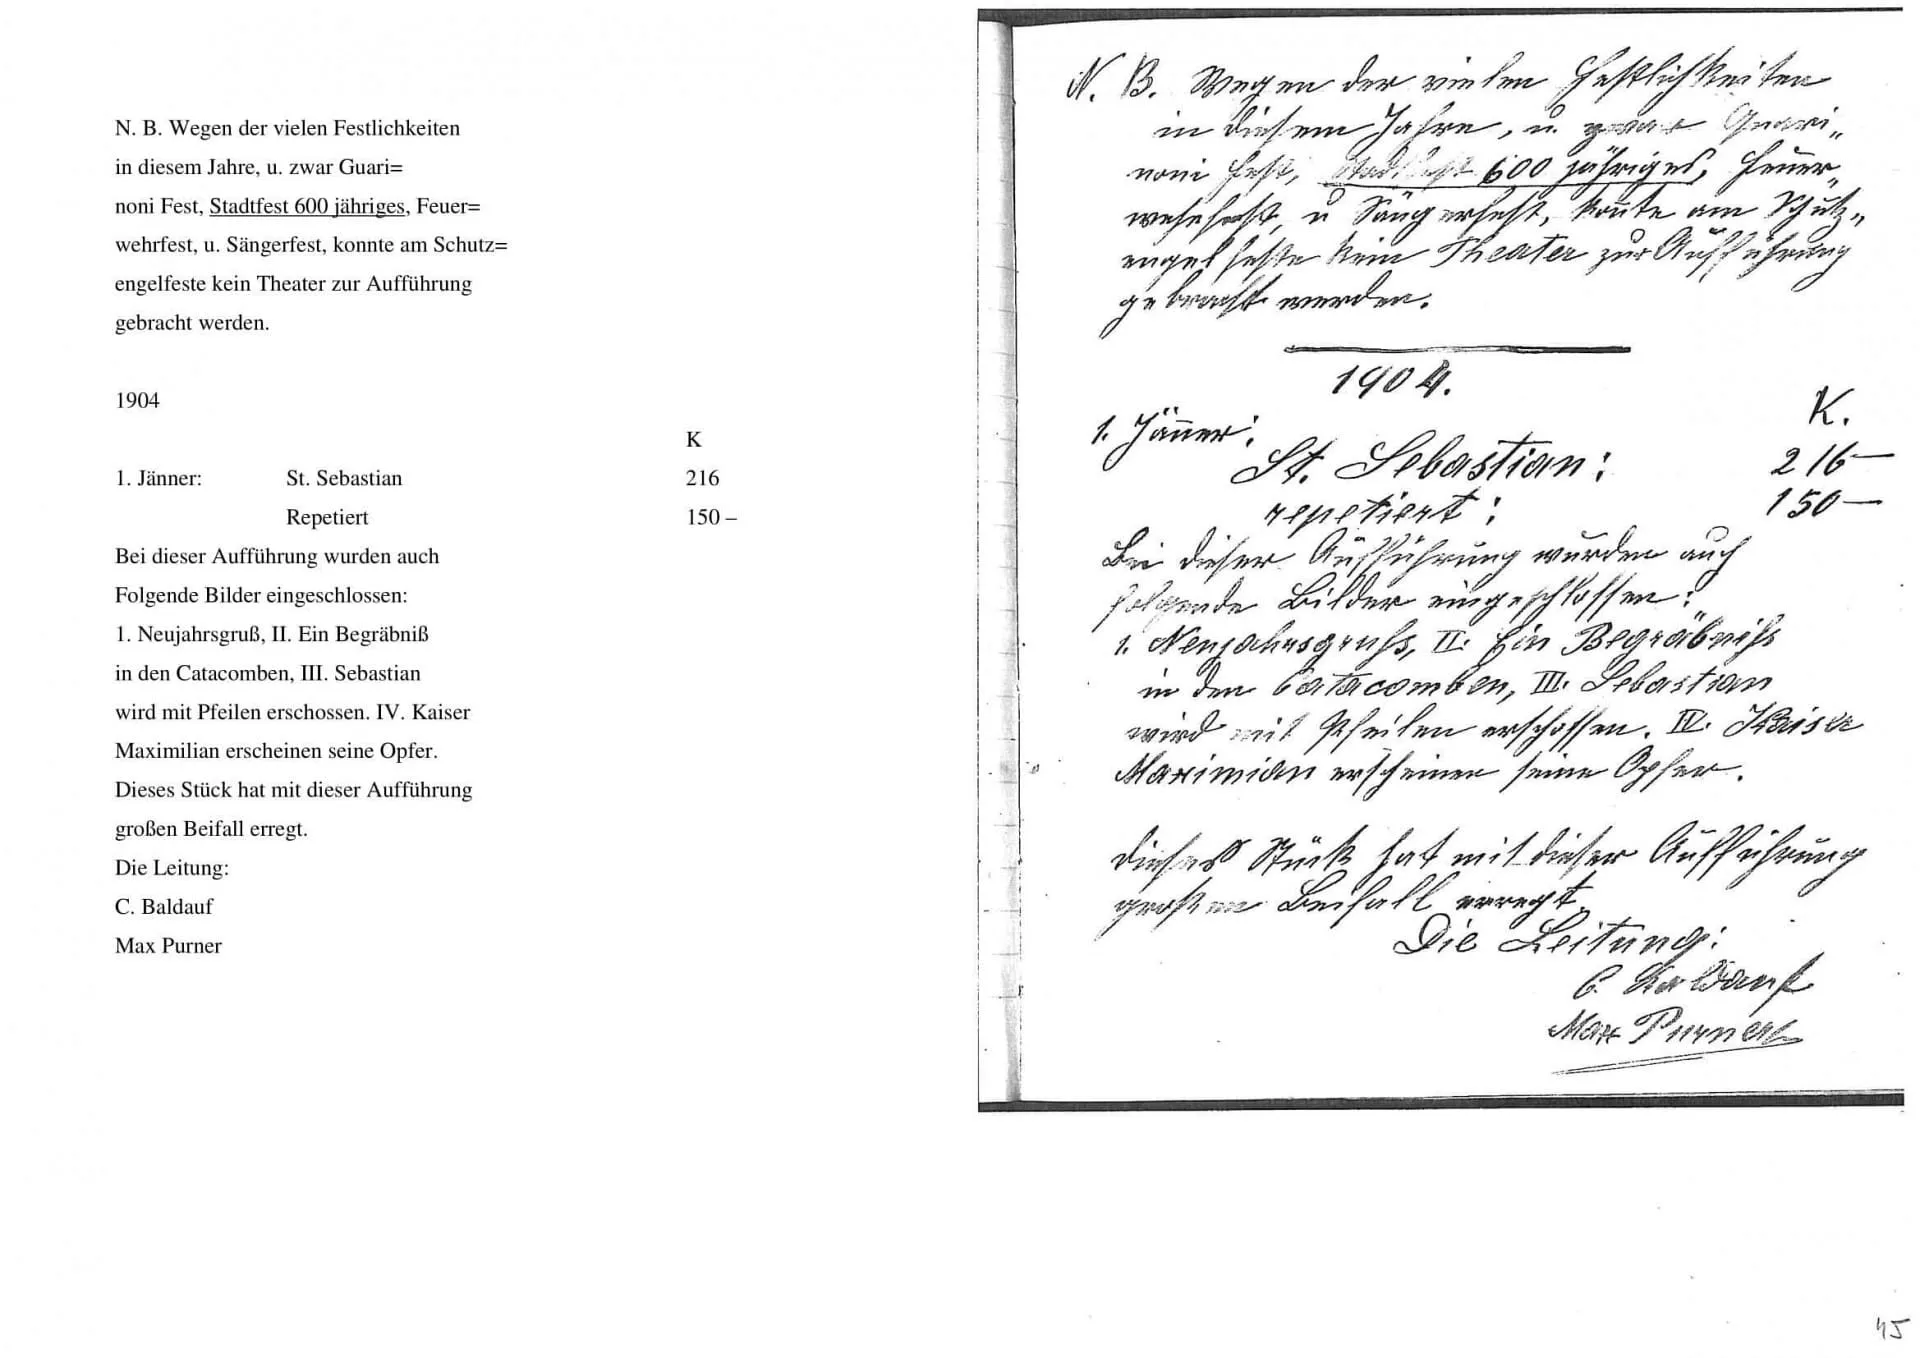 N. B. Wegen der vielen Festlichkeiten
in diesem Jahre, u. zwar Guari=
noni Fest, Stadtfest 600 jähriges, Feuer=
wehrfest, u. Sängerfest, konnte am Schutz=
engelfeste kein Theater zur Aufführung
gebracht werden.
1904
K
1. Jänner: St. Sebastian 216
Repetiert 150 –
Bei dieser Aufführung wurden auch
Folgende Bilder eingeschlossen:
1. Neujahrsgruß, II. Ein Begräbniß
in den Catacomben, III. Sebastian
wird mit Pfeilen erschossen. IV. Kaiser
Maximilian erscheinen seine Opfer.
Dieses Stück hat mit dieser Aufführung
großen Beifall erregt.
Die Leitung:
C. Baldauf
Max Purner
N. B. Wegen der vielen Festlichkeiten
in diesem Jahre, u. zwar Guari„
noni Fest, Stadtfest 600 jähriges, Feuer„
wehrfest, u Sängerfest, konnte am Schutz„
engelfeste kein Theater zur Aufführung
gebracht werden.
1904.
K.
1. Jänner:
St. Sebastian: 216—
repetiert: 150—
Bei dieser Aufführung wurden auch
folgende Bilder eingeschlossen:
1. Neujahrsgruß, II. Ein Begräbniß
in den Catacomben, III. Sebastian
wird mit Pfeilen erschossen. IV. Kaiser
Maximian erscheinen seine Opfer.
dieses Stück hat mit dieser Aufführung
großen Beifall erregt.
Die Leitung:
C. Baldauf
Max Purner
45